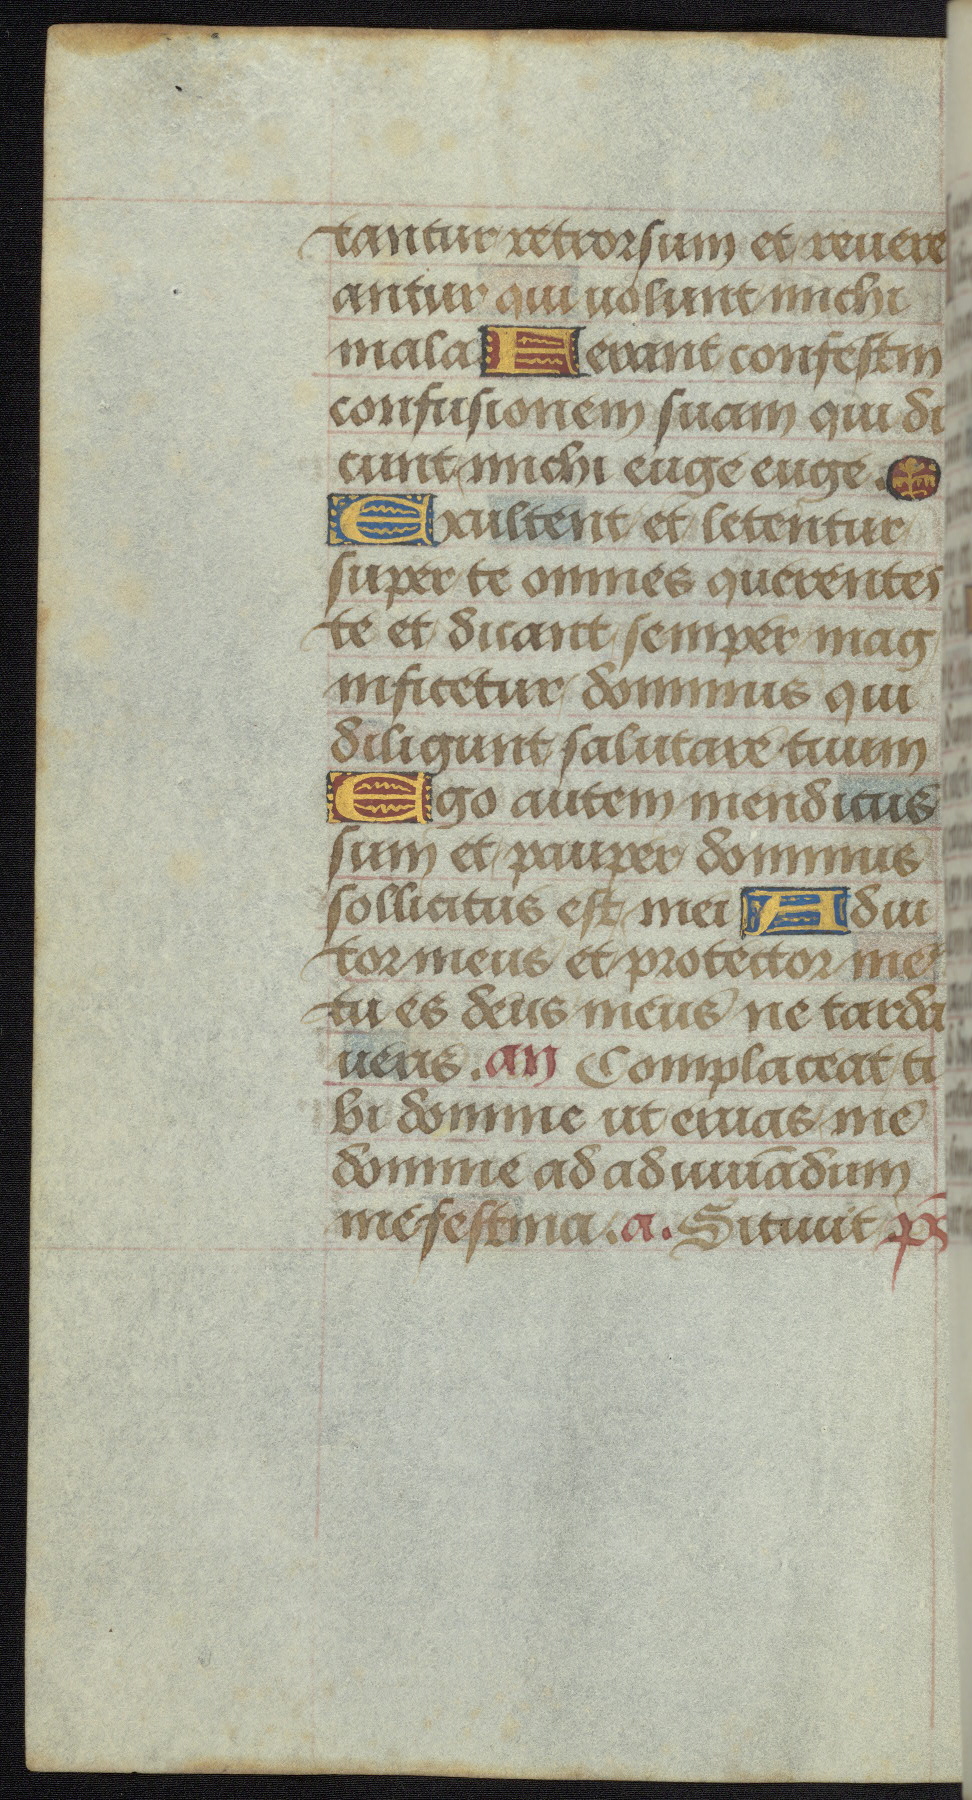 tantur retrorsum et reuere
antur qui uolunt michi
mala. Ferant confestim
confusionem suam qui di
cunt michi euge euge.
Exultent et letentur
super te omnes querentes
te et dicant semper mag
nificetur dominus qui
diligunt salutare tuum
Ego autem mendicus
sum et pauper dominus
sollicitus est mei Adiu
tor meus et protector me⁹
tu es deus meus ne tarda
ueris. an Complaceat ti
bi domine ut eruas me
domine ad adiuuādum
me festina. a. Sitiuit p̄s